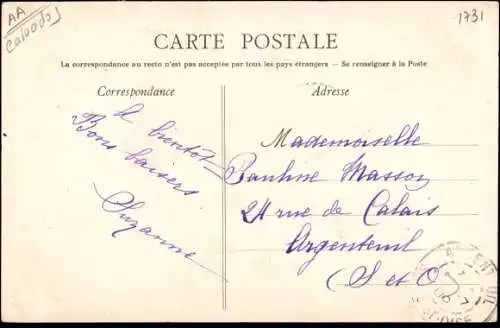 AA
Calvados
1731
CARTE POSTALE
La correspondance au recto n'est pas acceptée par tous les pays étrangers -- Se renseigner à la Poste
Correspondance
Adresse
A bientôt
Bons baisers
Suzanne
Mademoiselle
Pauline Masson
24 rue de Calais
Argenteuil
(S et O)